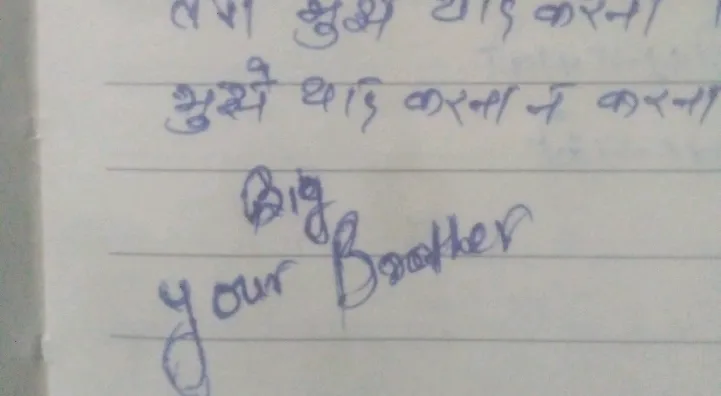 तुम मुझे याद करना
मुझे याद करना न करना
Big
your Brother